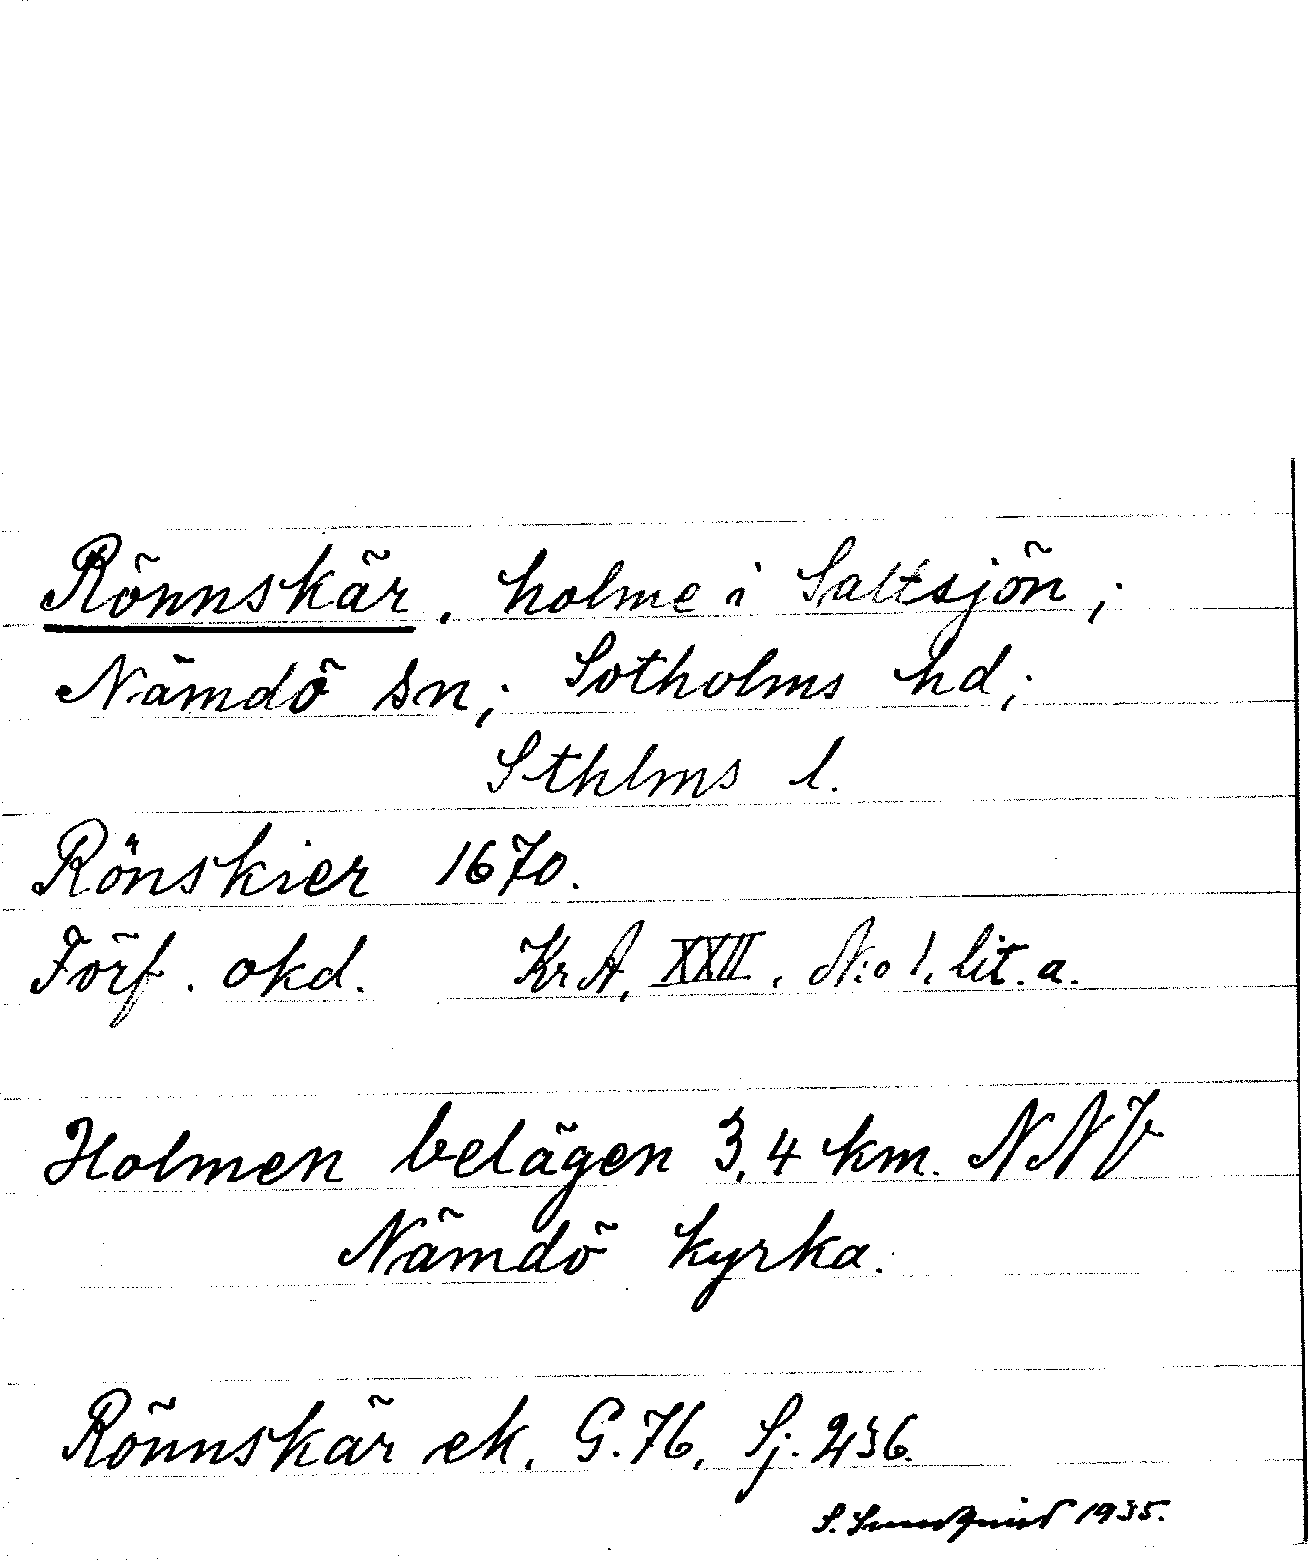 Rönnskär, holme i Saltsjön;
Nämdö sn; Sotholms hd;
Sthlms l.
Rönskier 1670.
Förf. okd. Kr A, XXII, N:o 1, lit. a.
Holmen belägen 3,4 km. NNV
Nämdö kyrka.
Rönnskär ek. G.76, Sj. 236.
S. Sundquist 1935.